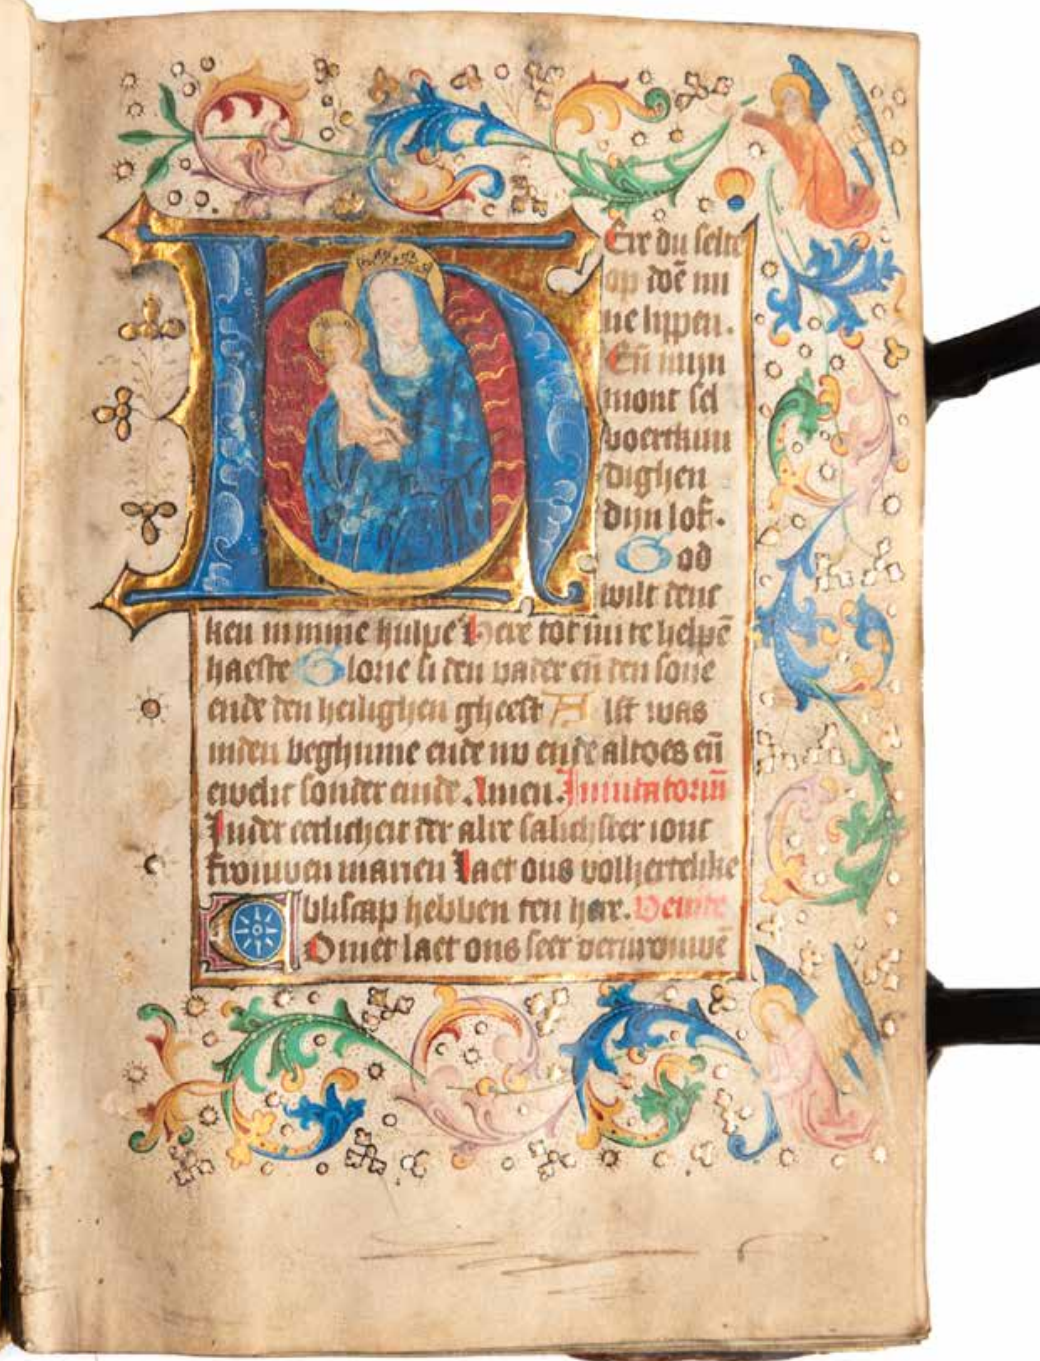 HEre du selte
op doē mi
ne lippen.
Eñ mijn
mont sel
voertkun
dighen
dijn lof.
God
wilt denc
ken in mine hulpe Here tot mi te helpē
haeste Glorie si den vader eñ den sone
ende den heilighen gheest Alst was
inden beghinne ende nu ende altoes eñ
ewelic sonder einde. Amen. Inuitatoriū
In der eerlicheit der alre salichster ionc
frouwen marien Laet ons volhertelike
bliscap hebben ten here. Venite
Comet laet ons seer vervrouwē